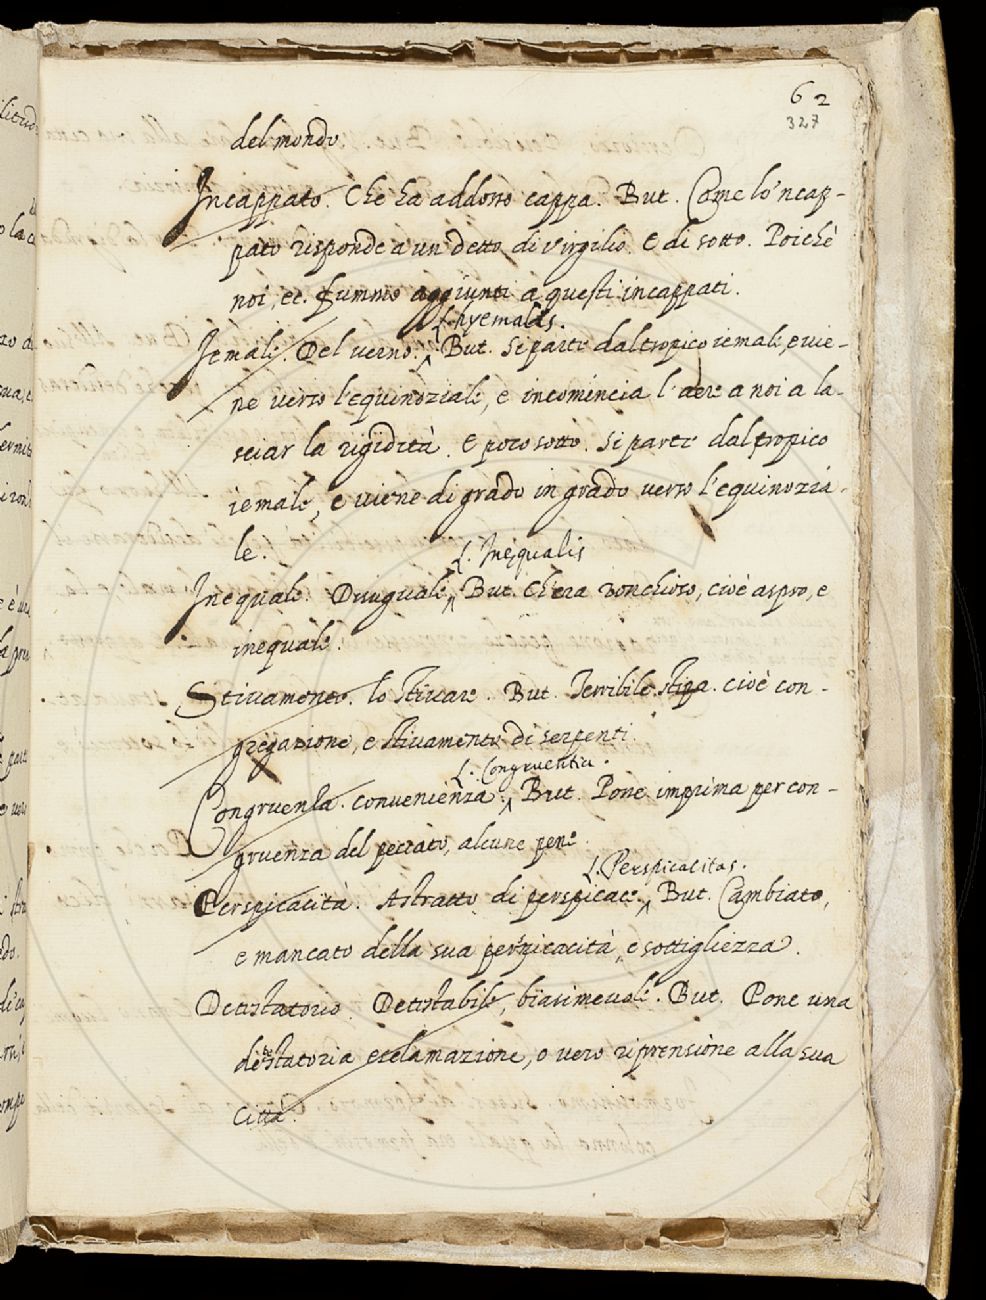 62
327
del mondo.
Incappato. Che ha addosso cappa. But. Come lo'ncap-
pato risponde a un detto di Virgilio. E di sotto. Poichè
noi, ec. fummo aggiunti a questi incappati.
L. hyemalis.
Iemale. Del verno. But. Si parte dal tropico iemale, e vie-
ne verso l'equinoziale, e incomincia l'aere a noi a la-
sciar la rigidità. E poco sotto. Si parte dal tropico
iemale, e viene di grado in grado verso l'equinozia-
le.
L. Inequalis
Inequale. Disuguale. But. Ch'era ronchioso, cioè aspro, e
inequale.
Stivamento. lo stivare. But. Terribile stipa. cioè con-
gregazione, e stivamento di serpenti.
L. Congruentia.
Congruenza. convenienza. But. Pone imprima per con-
gruenza del peccato, alcune pene
L. Perspicacitas.
Perspicacità. Astratto di perspicace. But. Cambiato,
e mancato della sua perspicacità, e sottigliezza.
Detestatorio. Detestabile, biasimevole. But. Pone una
detestatoria esclamazione, o vero riprensione alla sua
Città.